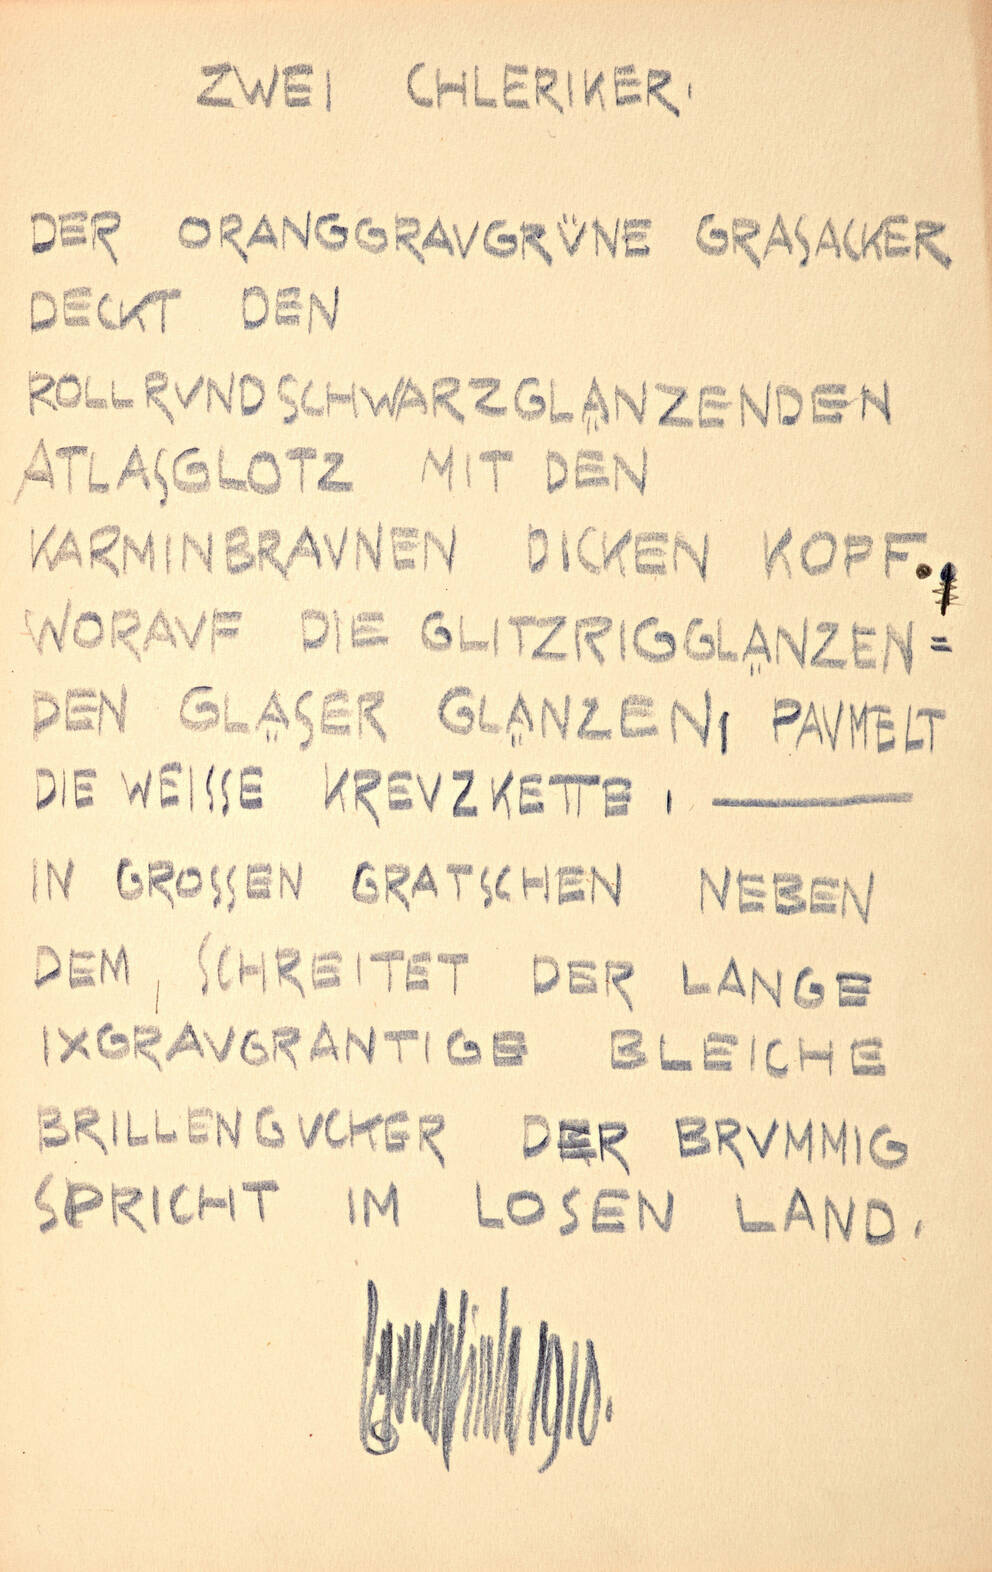 ZWEI CHLERIKER.
DER ORANGGRAVGRÜNE GRASACKER
DECKT DEN
ROLLRVNDSCHWARZGLÄNZENDEN
ATLASGLOTZ MIT DEN
KARMINBRAVNEN DICKEN KOPF.
WORAVF DIE GLITZRIGGLÄNZEN=
DEN GLÄSER GLÄNZEN, PAVMELT
DIE WEISSE KREVZKETTE. —
IN GROSSEN GRATSCHEN NEBEN
DEM, SCHREITET DER LANGE
IXGRAVGRANTIGE BLEICHE
BRILLENGVCKER DER BRVMMIG
SPRICHT IM LOSEN LAND.
1910.